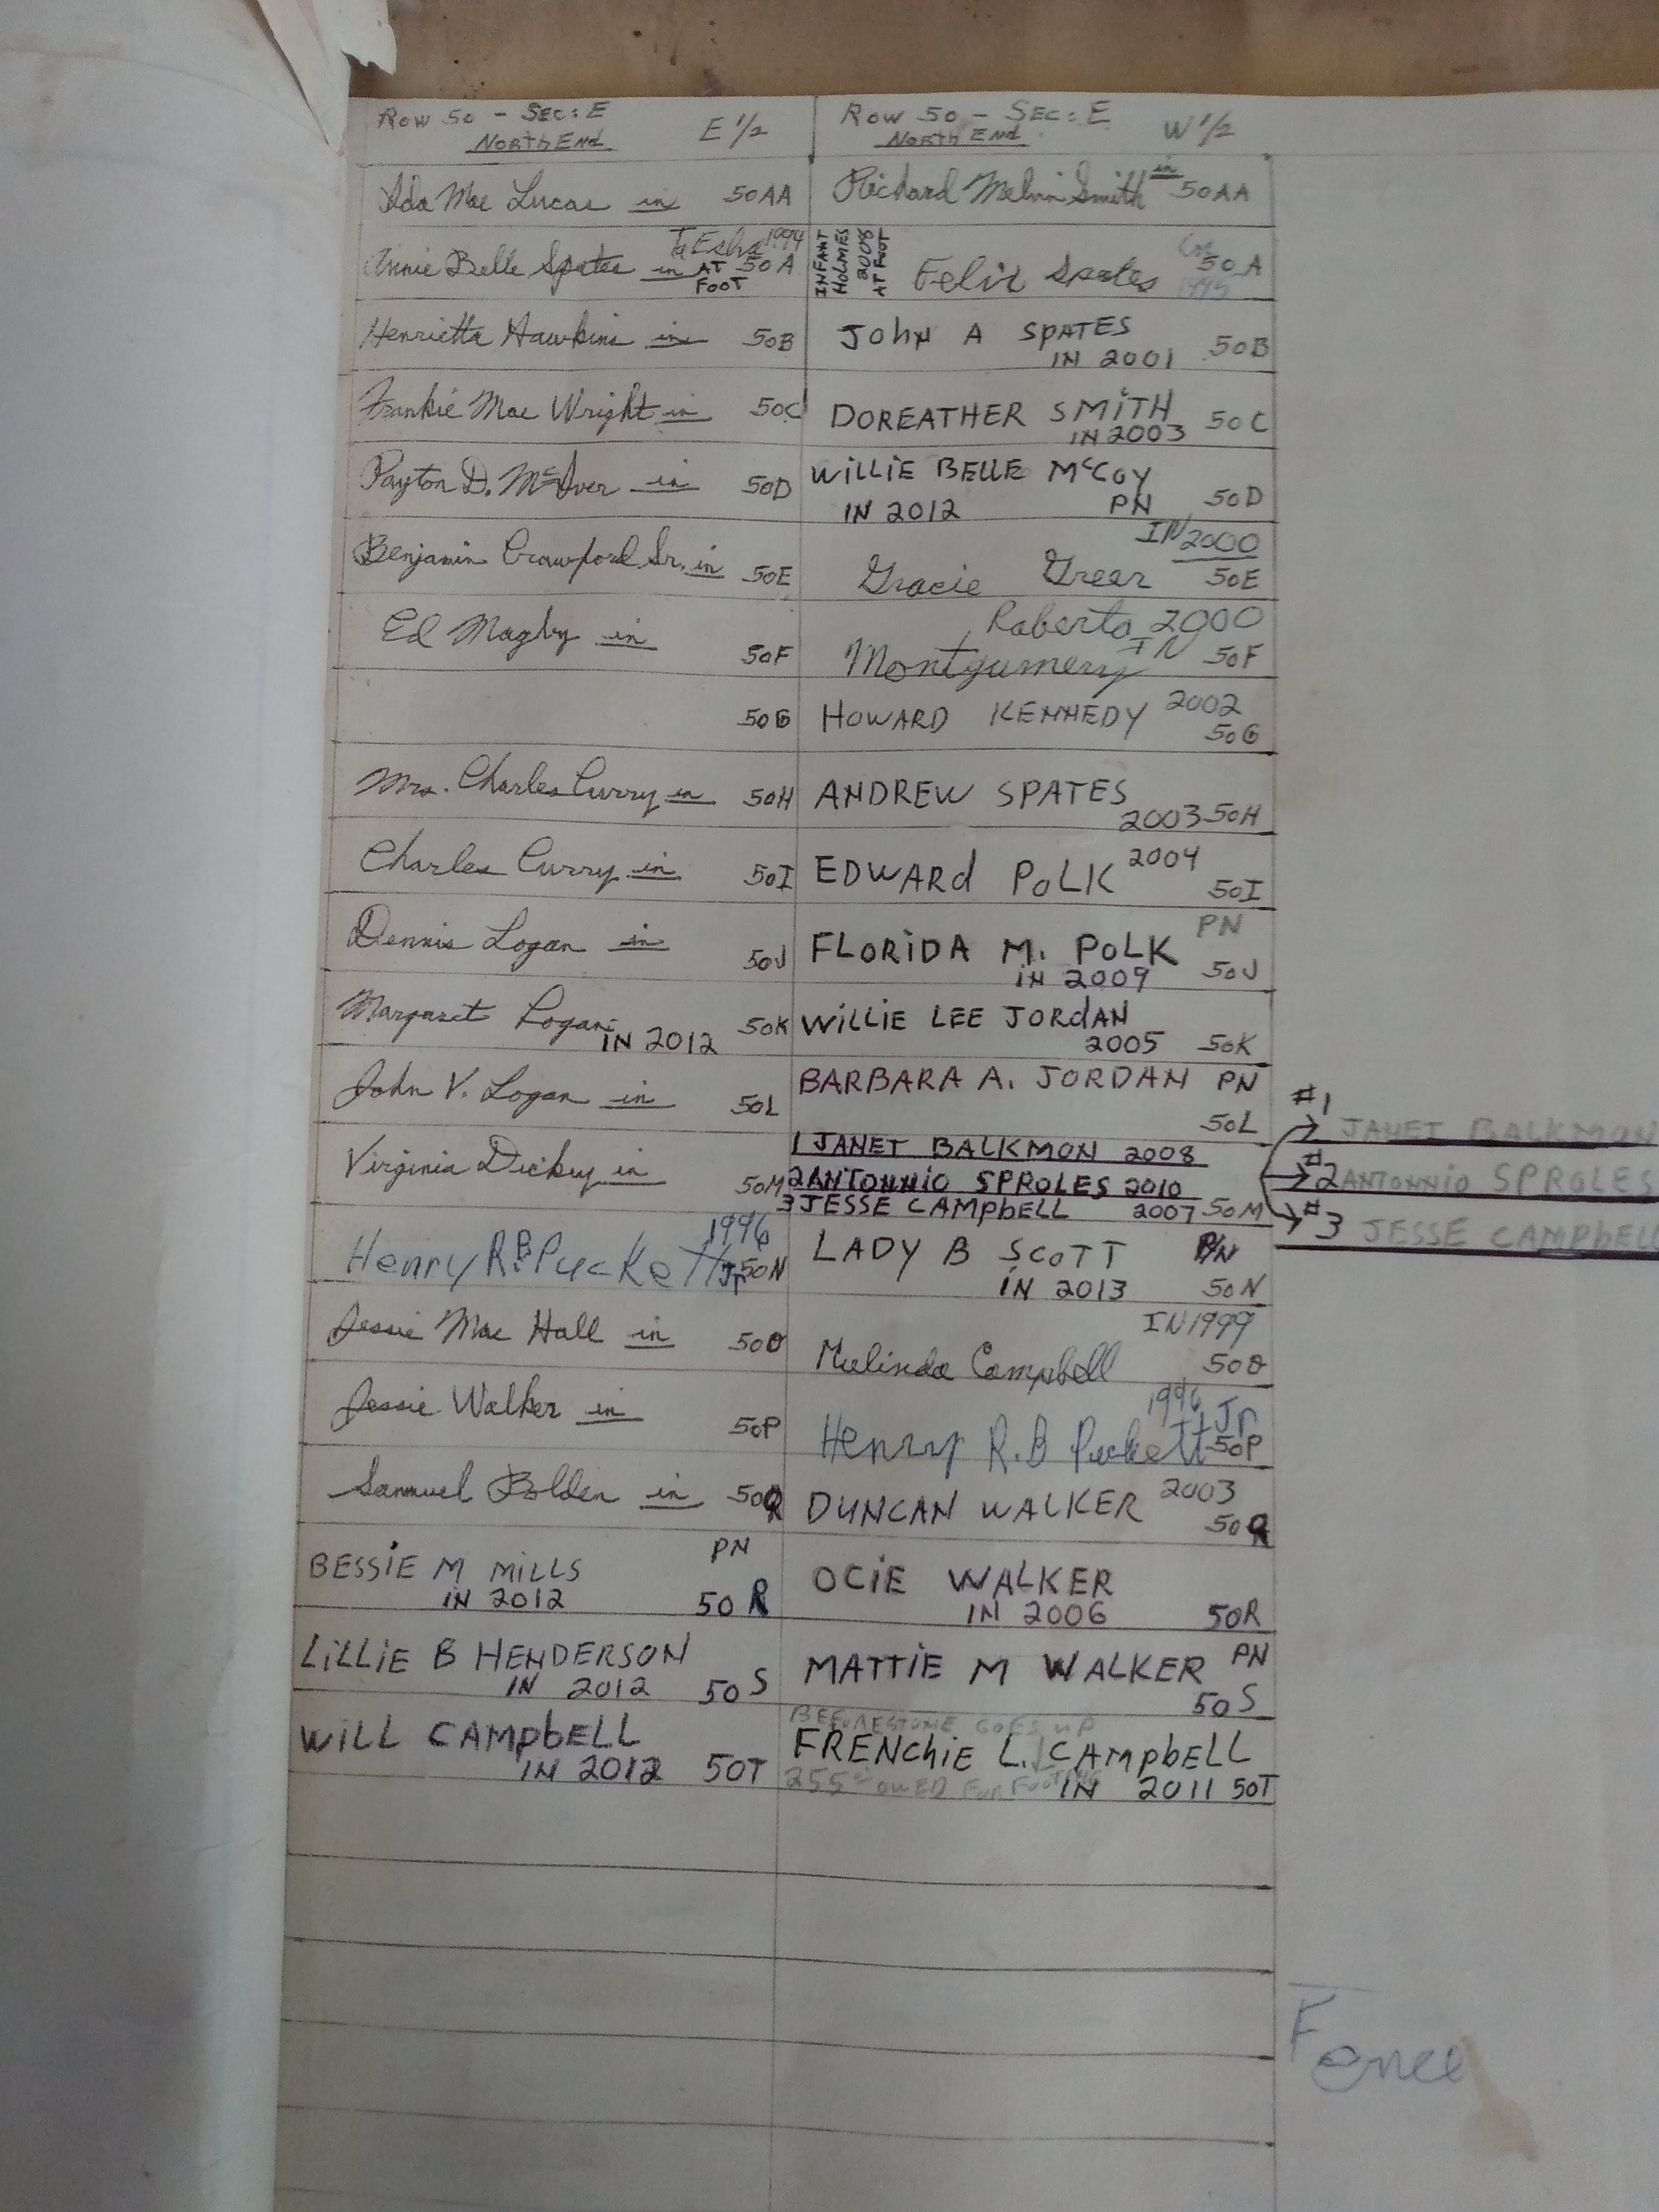 Row 50 - SEC: E
NORTH End E 1/2
Row 50 - SEC: E
NORTH End W 1/2
Ida Mae Lucas in 50AA
Richard Melvin Smith in 50AA
TaEsha 1994
Annie Belle Spates in AT 50A
FOOT
INFANT
HOLMES
2008
AT FOOT
Felix Spates 50A
1995
Henrietta Hawkins in 50B
JOHN A SPATES
IN 2001 50B
Frankie Mae Wright in 50C
DOREATHER SMITH 50C
IN 2003
Payton D. McIver in 50D
WILLIE BELLE McCOY
IN 2012 PN 50D
Benjamin Crawford Sr. in 50E
IN 2000
Gracie Greer 50E
Ed Magby in 50F
Roberta 2000
Montgumery IN 50F
50G
HOWARD KENNEDY 2002
50G
Mrs. Charles Curry in 50H
ANDREW SPATES
2003 50H
Charles Curry in 50I
EDWARd POLK 2004
50I
Dennis Logan in 50J
PN
FLORIDA M. POLK
IN 2009 50J
Margaret Logan
IN 2012 50K
WILLIE LEE JORdAN
2005 50K
John V. Logan in 50L
BARBARA A. JORDAN PN
50L
Virginia Dickey in 50M
1 JANET BALKMON 2008
2 ANTONNIO SPROLES 2010
3 JESSE CAMPbELL 2007 50M
#1 JANET BALKMON
#2 ANTONNIO SPROLES
#3 JESSE CAMPbELL
1996
Henry R.B. Puckett Jr 50N
LADY B SCOTT P/N
IN 2013 50N
Jessie Mae Hall in 50O
IN 1999
Melinda Campbell 50O
Jessie Walker in 50P
1996 Jr
Henry R.B Puckett 50P
Sammuel Bolden in 50Q
DUNCAN WALKER 2003
50Q
PN
BESSIE M MILLS
IN 2012 50 R
OCIE WALKER
IN 2006 50R
LILLIE B HENDERSON
IN 2012 50 S
MATTIE M WALKER PN
50 S
WILL CAMPbELL
IN 2012 50T
BEFORE STONE GOES UP
FRENChIE L. CAMPbELL
255 OWED FOR FOOTING
IN 2011 50T
Fence